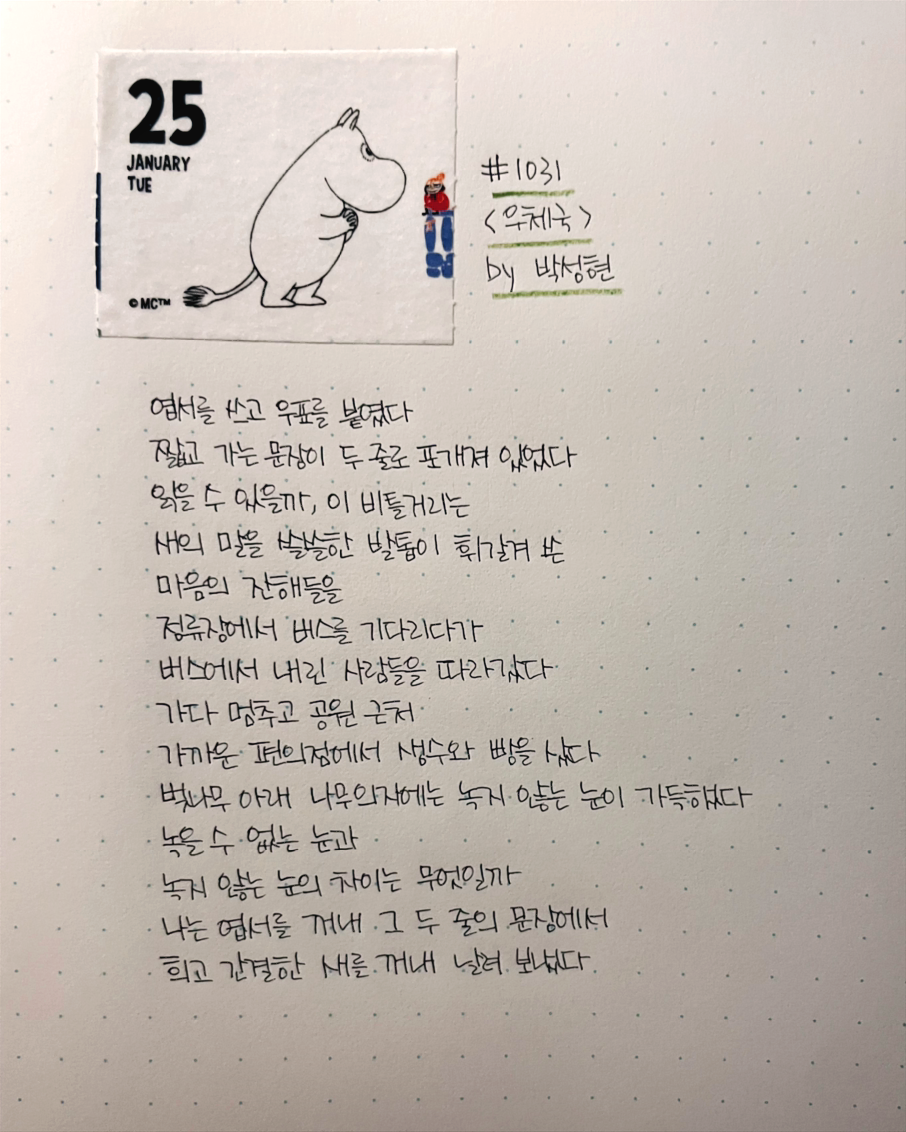 25
JANUARY
TUE
©MC™
#1031
<우체국>
by 박성현
엽서를 쓰고 우표를 붙였다
짧고 가는 문장이 두 줄로 포개져 있었다
읽을 수 있을까, 이 비틀거리는
새의 말을 쓸쓸한 발톱이 휘갈겨 쓴
마음의 잔해들을
정류장에서 버스를 기다리다가
버스에서 내린 사람들을 따라갔다
가다 멈추고 공원 근처
가까운 편의점에서 생수와 빵을 샀다
벚나무 아래 나무의자에는 녹지 않는 눈이 가득했다
녹을 수 없는 눈과
녹지 않는 눈의 차이는 무엇일까
나는 엽서를 꺼내 그 두 줄의 문장에서
희고 간결한 새를 꺼내 날려 보냈다